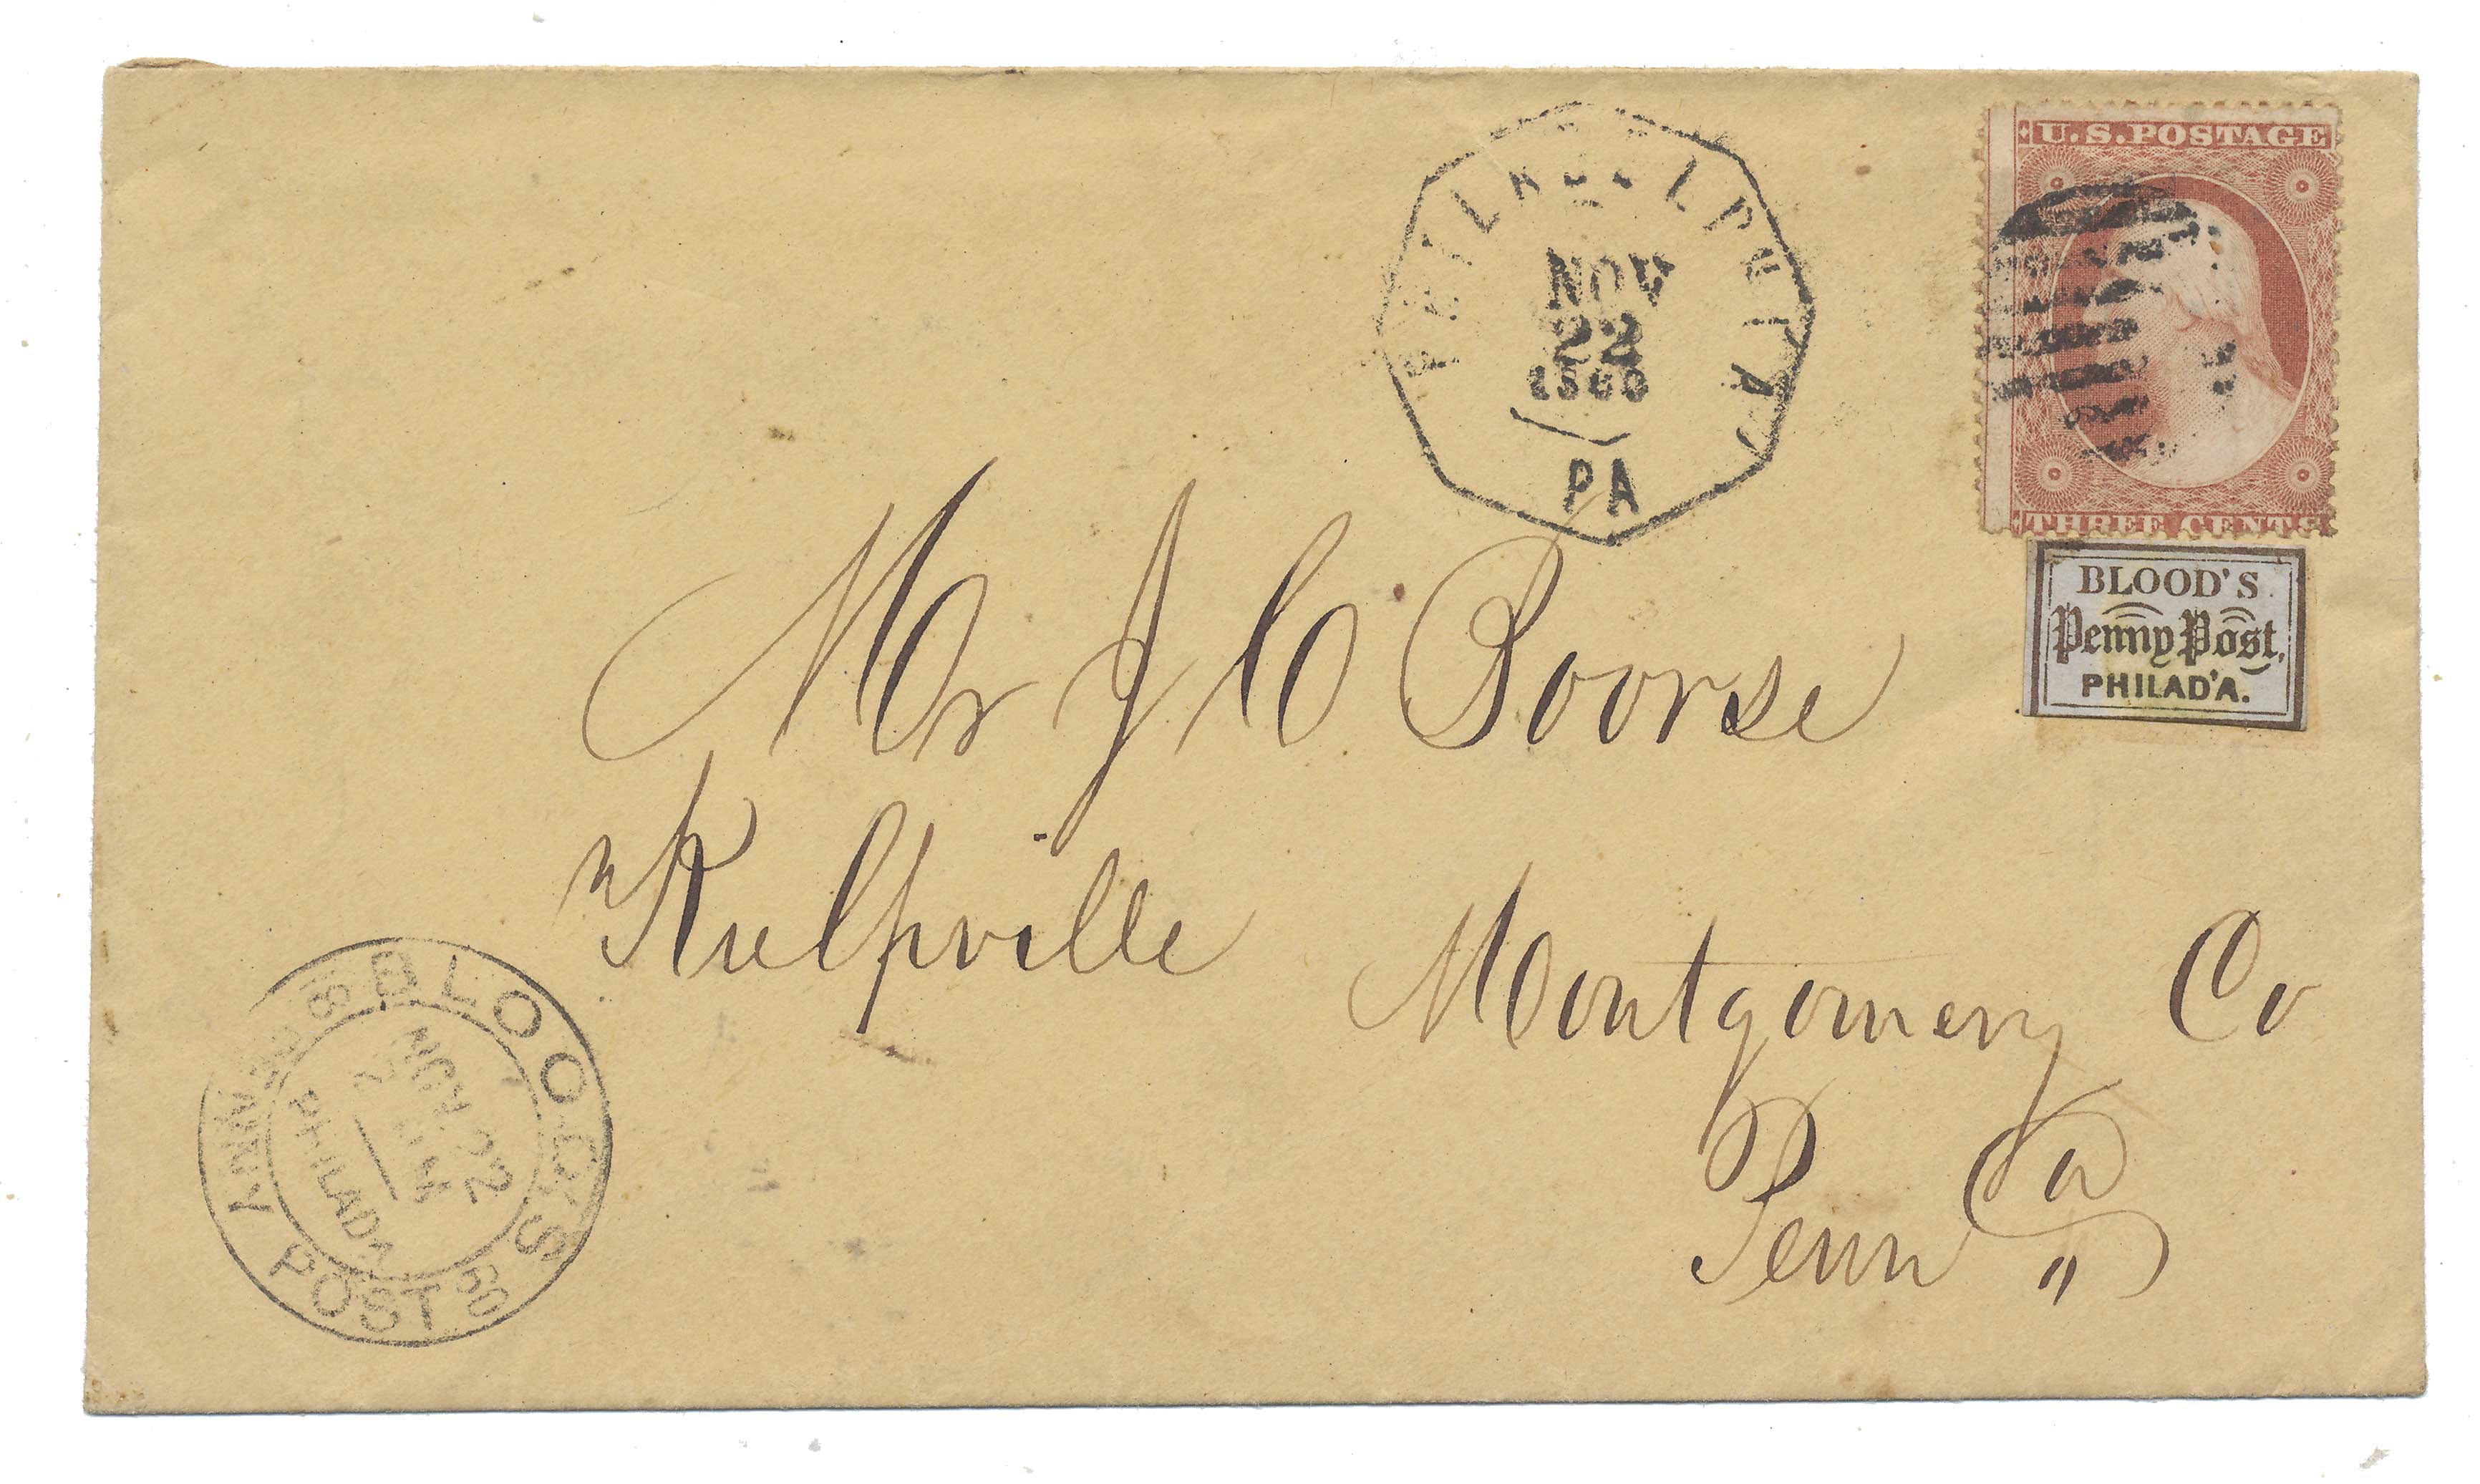 U.S.POSTAGE
THREE CENTS
BLOOD'S
Penny Post.
PHILAD'A.
PHILADELPHIA
NOV
22
1860
PA
Mr J C Boorse
Kulpville Montgomery Co
Penn a
BLOOD'S PENNY POST
NOV 22
PHILADA